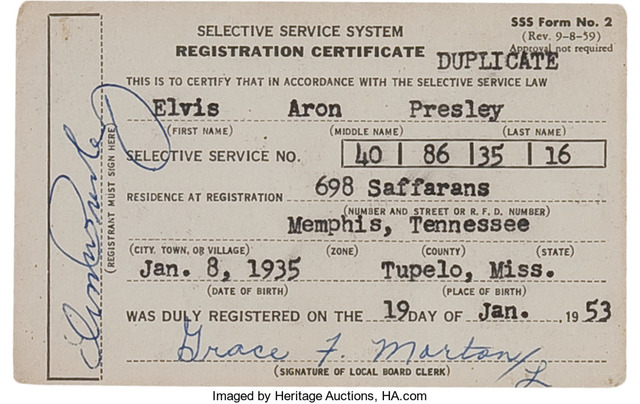 SSS Form No. 2
(Rev. 9-8-59)
Approval not required
SELECTIVE SERVICE SYSTEM
REGISTRATION CERTIFICATE
DUPLICATE
THIS IS TO CERTIFY THAT IN ACCORDANCE WITH THE SELECTIVE SERVICE LAW
Elvis Aron Presley
(FIRST NAME) (MIDDLE NAME) (LAST NAME)
SELECTIVE SERVICE NO. 40 | 86 | 35 | 16
RESIDENCE AT REGISTRATION 698 Saffarans
(NUMBER AND STREET or R. F. D. NUMBER)
Memphis, Tennessee
(CITY. TOWN, OR VILLAGE) (ZONE) (COUNTY) (STATE)
Jan. 8, 1935 Tupelo, Miss.
(DATE OF BIRTH) (PLACE OF BIRTH)
WAS DULY REGISTERED ON THE 19 DAY OF Jan. , 19 53
Grace F. Morton/L
(SIGNATURE OF LOCAL BOARD CLERK)
(REGISTRANT MUST SIGN HERE)
Elvis Presley
Imaged by Heritage Auctions, HA.com